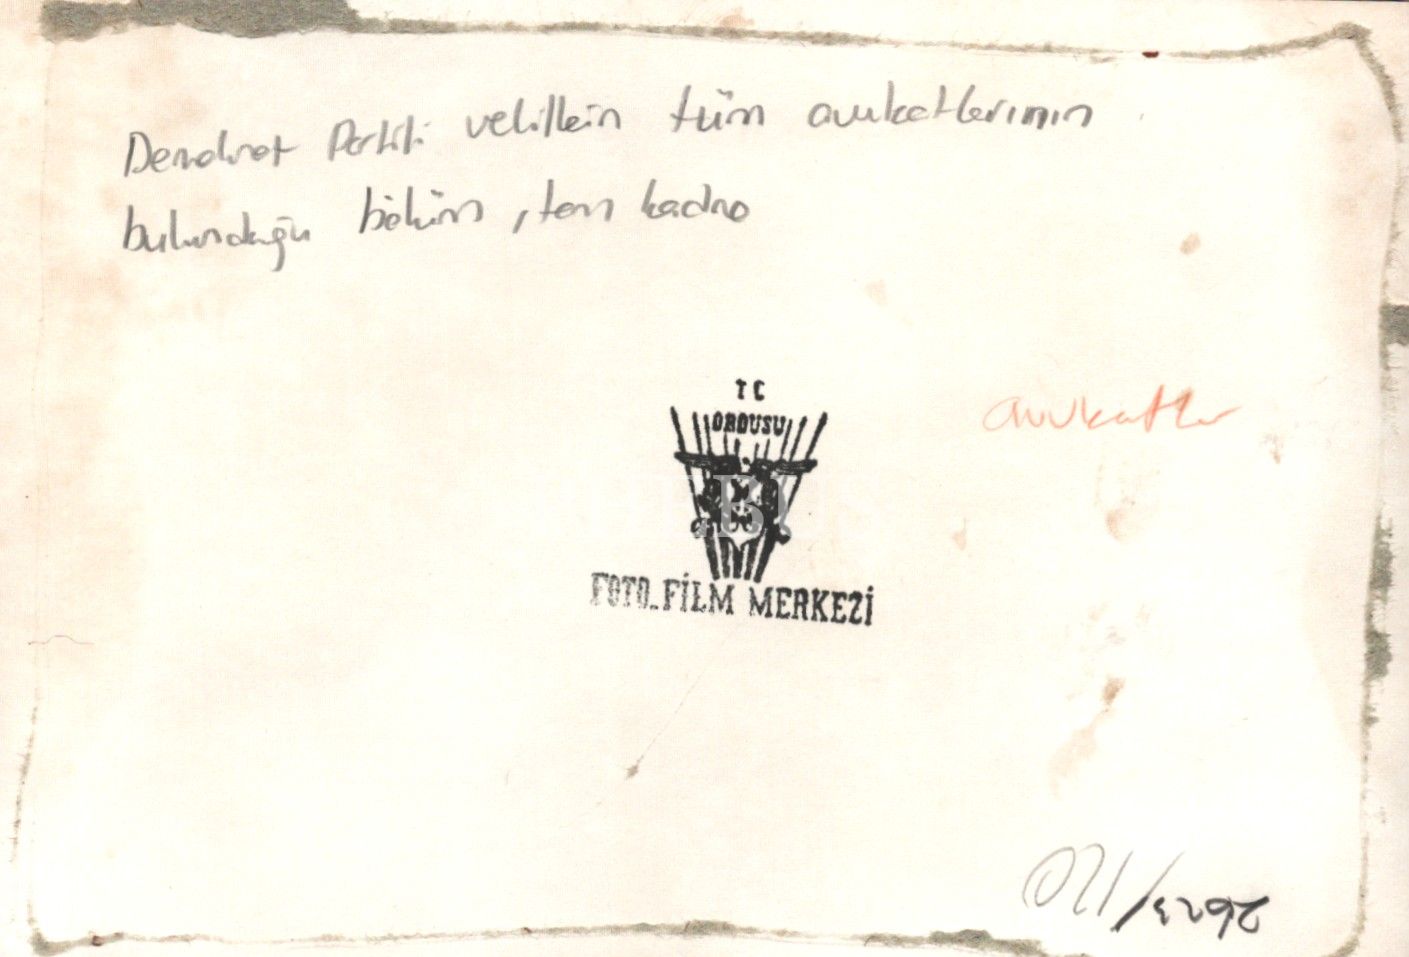 Demokrat Partili vekillerin tüm avukatlarının
bulunduğu bölüm, tam kadro
T C
ORDUSU
avukatlar
FOTO-FİLM MERKEZİ